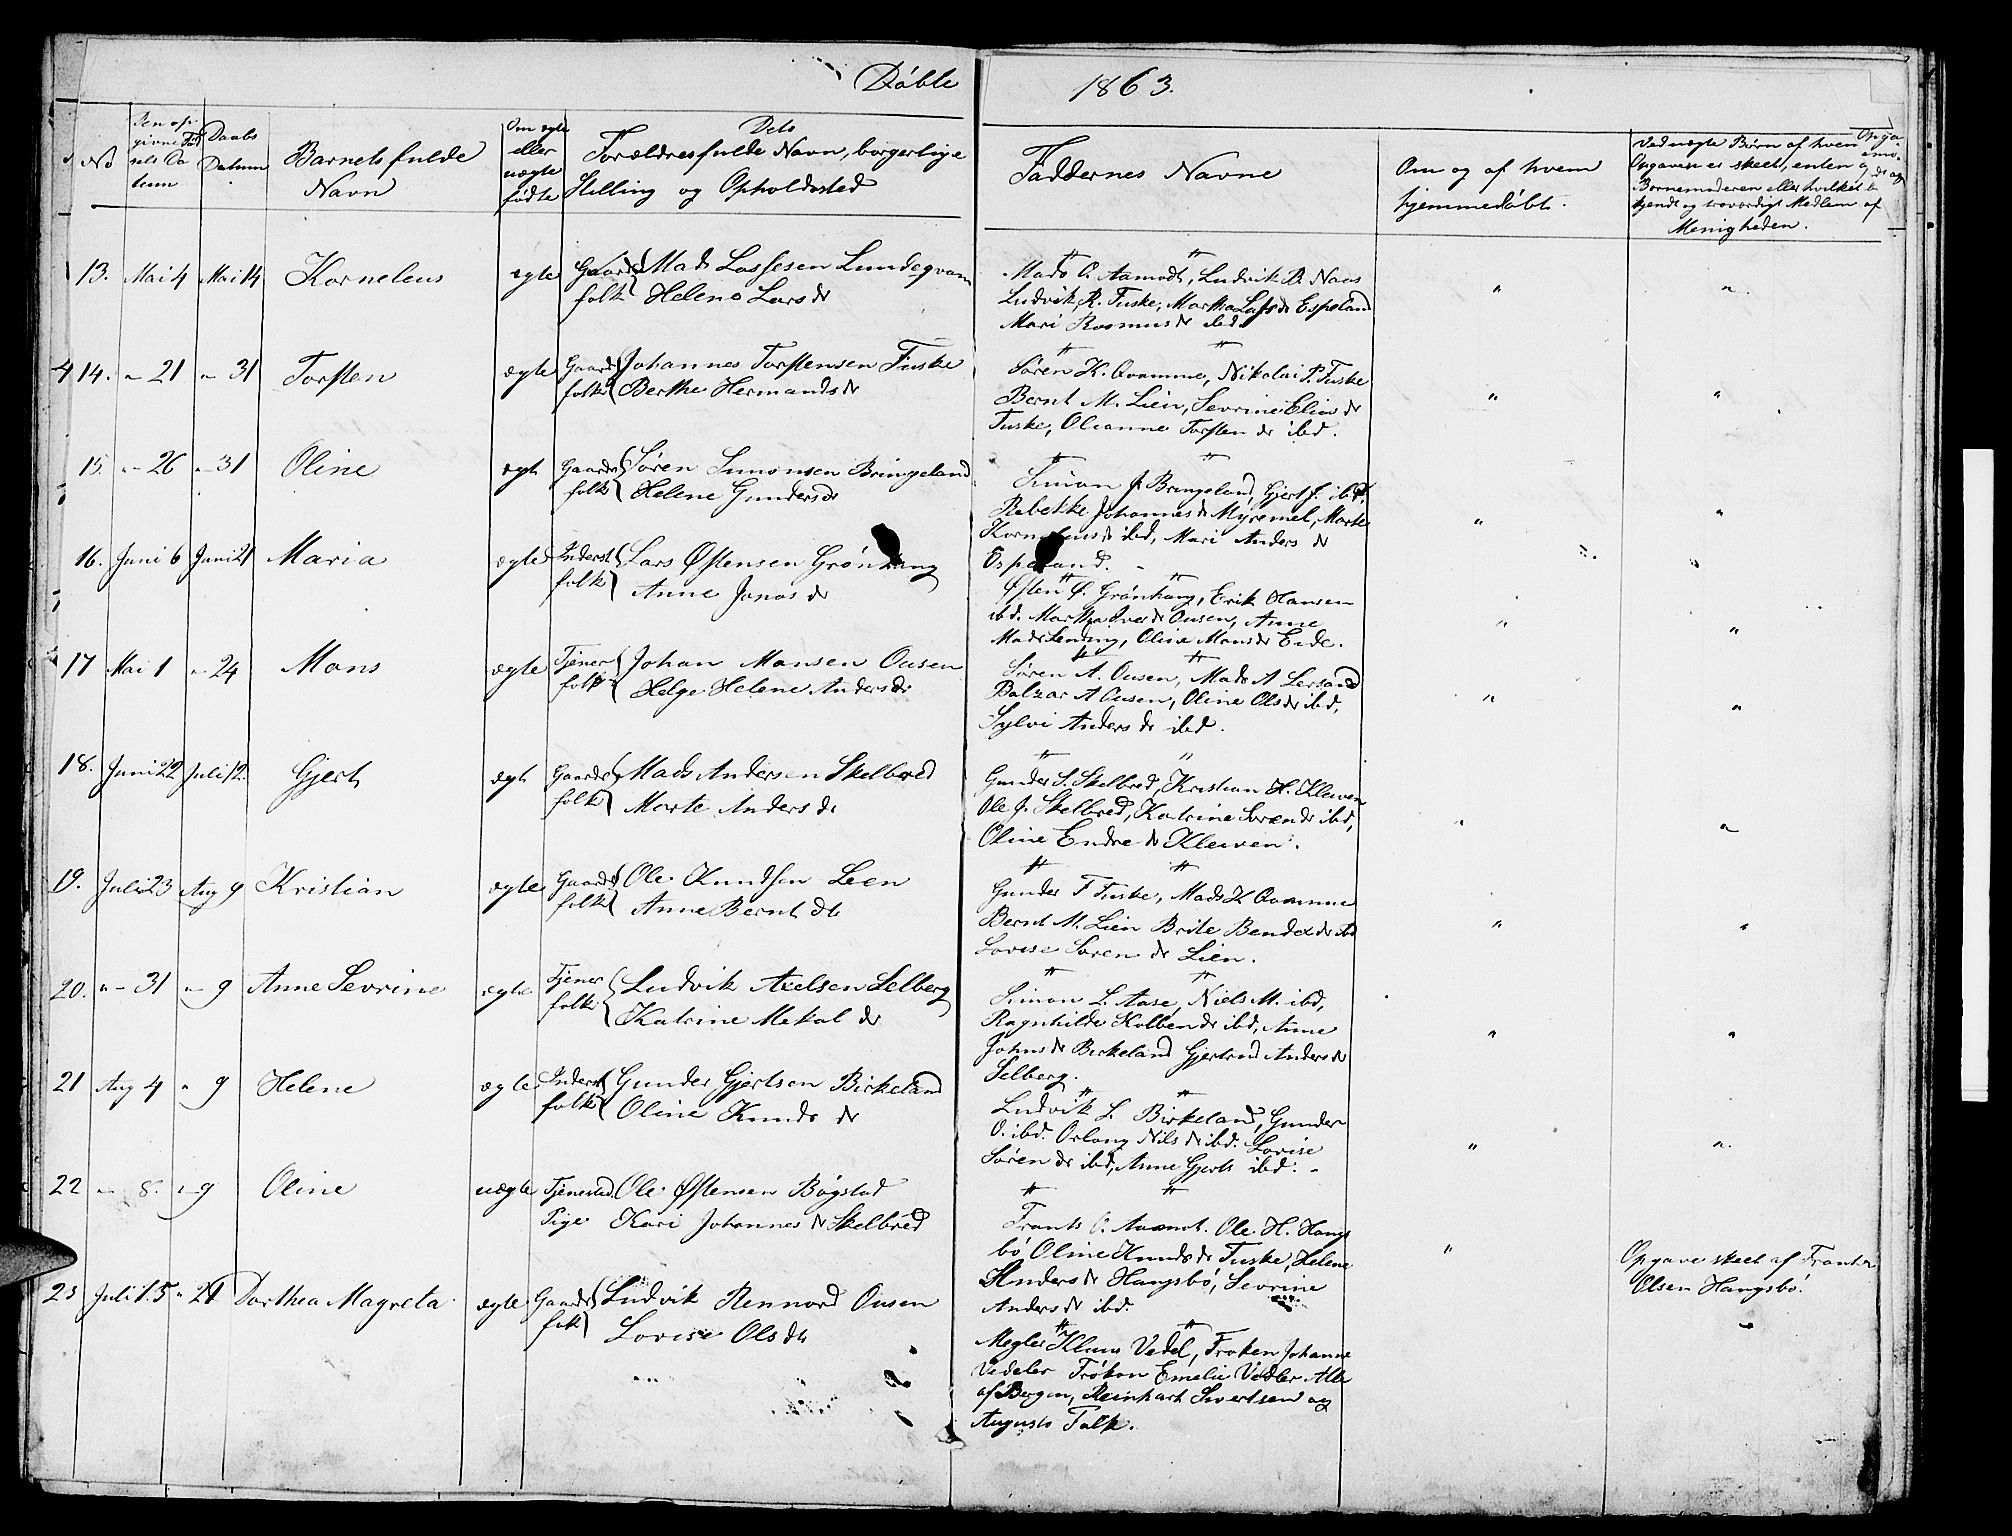 Døbte 1863.
No
Den opgivne Fødsels Datum
Daabs Datum
Barnets fulde Navn
Om ægte eller uægte fødte
Dets Forældres fulde Navn, borgerlige Stilling og Opholdssted
Faddernes Navne
Om og af hvem hjemmedøbt.
Ved uægte Børn af hvem Opgaven er skeet, enten
Barnemoderen eller hvilket
kjendt og troværdigt Medlem af
Menigheden.
13. Mai 4 Mai 14 Kornelius ægte Gaardfolk Mads Lassesen Lundeqvam
Helene Larsdr
Mads O. Aamodt, Ludvik B. Naas
Ludvik R. Fuske, Martha Lassdr Espeland
Mari Rasmusdr ibd.
" "
14. " 21 " 31 Torsten ægte Gaardfolk Johannes Torstensen Fuske
Berthe Hermandsdr
Søren K. Qvamme, Nikolai P. Fuske
Bernt M. Lien, Sevrine Eliedr
Fuske, Olianne Torstendr ibd.
" "
15. " 26 " 31 Oline ægt Gaardfolk Søren Simonsen Bringeland
Helene Gundersdr
Simon J. Bringeland, Gjert J. ibd.
Rebekke Johannesdr Myremel, Marte
Korneliusdr ibd, Mari Andersdr
Espeland.
" "
16. Juni 6 Juni 21 Maria ægte Inderstfolk Lars Østensen Grønhaug
Anne Jonasdr
Østen Ø. Grønhaug, Erik Hansen
ibd. Martha Iversdr Ousen, Anne
Oline Monsdr Eide.
" "
17 Mai 1 " 24 Mons ægte Tjenerfolk Johan Monsen Ousen
Helge Helene Andersdr
Søren A. Ousen, Mads A
Balzar A Ousen, Oline Olsdr ibd,
Sylvi Andersdr ibd.
" "
18. Juni 22 Juli 12. Gjert ægt Gaardfolk Mads Andersen Skelbred
Marte Andersdr
Gunder S. Skelbred, Kristian H. Kleiven
Ole J. Skelbred, Katrine Sørendr ibd,
Oline Endredr Kleiven.
" "
19. Juli 23 Aug 9 Kristian ægte Gaardfolk Ole Knudsen Leen
Anne Berntdtr
Gunder F Fuske, Mads K Qvamme
Bernt M. Lien Brite Bendixdr ibd
Lovise Sørendr Lien.
" "
20. " 31 " 9 Anne Sevrine ægte Tjenerfolk Ludvik Axelsen Selberg
Katrine Mekaldr
Simon L. Aase, Niels M. ibd,
Ragnhilde Kolbendr ibd, Anne
Johnsdr Birkeland Gjertrud Andersdr
Selberg.
" "
21 Aug 4 " 9 Helene ægte Inderstfolk Gunder Gjertsen Birkeland
Oline Knudsdr
Ludvik L. Birkeland, Gunder
O. ibd. Nilsdr ibd. Lovise
Sørendr ibd, Anne Gjerts ibd.
" "
22 " 8. " 9 Oline uægte Ole Østensen Bøgstad
Tige Kari Johannesdr Skelbred
Frants O. Aamot. Ole H. Hangsbø
Oline Knudsdr Fuske, Helene
Andersdr Hangsbø, Sevrine
Andersdr ibd.
" Opgave skeet af Frants
Olsen Hangsbø.
23 Juli 15 " 21 Dorthea Magreta ægte Gaardfolk Ludvik Rennord Ousen
Lovise Olsdtr
Megler Klaus Vedel, Frøken Johanne
Vedeler Frøken Emelie Vedler Alle
af Bergen, Reinhart Sivertsen og
Augusta Falk.